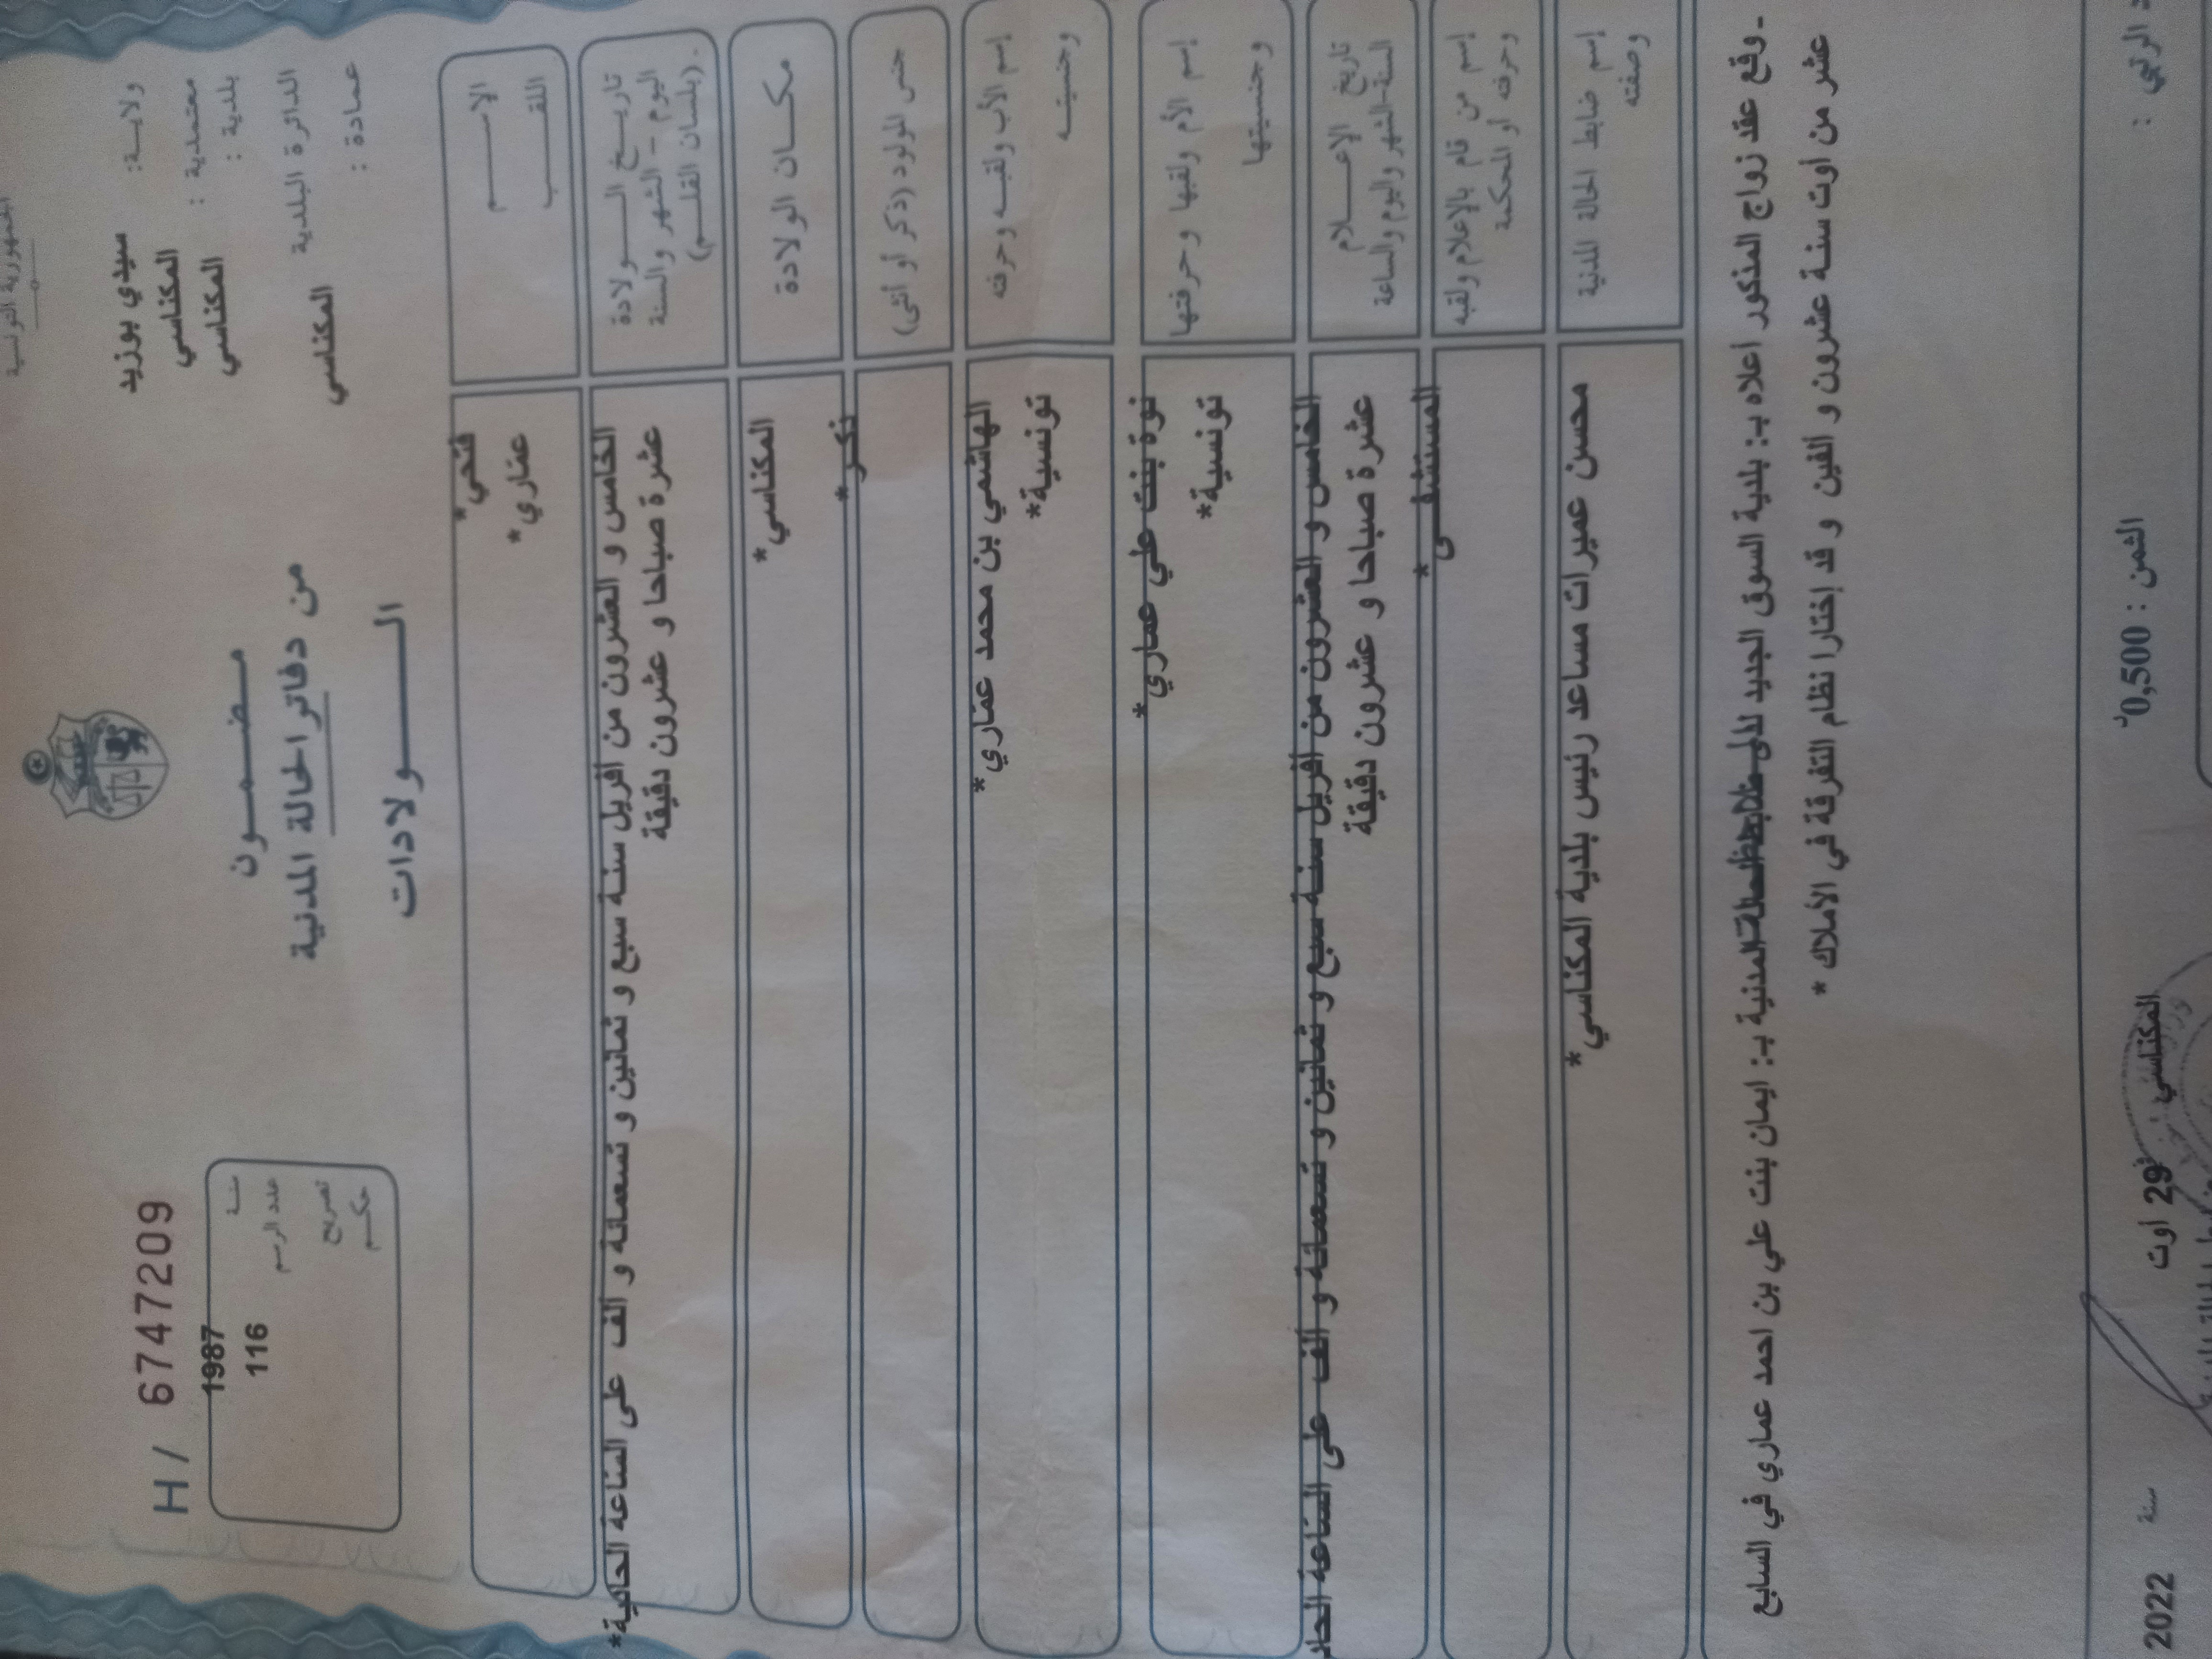 الجمهورية التونسية
ولايـة: سيدي بوزيد
معتمدية : المكناسي
بلدية : المكناسي
الدائرة البلدية
المكناسي
عمادة :
مـضـمـون
من دفاتر الحالة المدنية
الـولادات
H / 6747209
سنة 1987
عدد الرسم 116
تصريح
حكم
الاسـم فتحي*
اللقـب عمّاري*
تاريـخ الـولادة الخامس و العشرون من افريل سنة سبع و ثمانين و تسعمائة و الف على الساعة الحادية*
اليوم – الشهر والسنة عشرة صباحا و عشرون دقيقة
(بلسان القلـم).
مكـان الولادة المكناسي*
جنس المولود (ذكر أو أنثى) ذكر*
إسم الأب ولقبـه وحرفته الهاشمي بن محمد عمّاري*
وجنسيتـه تونسية*
إسم الأم ولقبها وحرفتها نوة بنت علي عماري*
وجنسيتها تونسية*
تاريخ الإعـلام الخامس و العشرون من افريل سنة سبع و ثمانين و تسعمائة و الف على الساعة الحاد
السنة-الشهر واليوم والساعة عشرة صباحا و عشرون دقيقة
إسم من قام بالإعلام ولقبه المستشفـى*
وحرفته أو المحكمة
إسم ضابط الحالة المدنية محسن عميرات مساعد رئيس بلدية المكناسي*
وصفته
- وقع عقد زواج المذكور اعلاه بـ: بلدية السوق الجديد لدى المدنية بـ: ايمان بنت علي بن احمد عماري في السابع
عشر من أوت سنة عشرون و ألفين و قد إختارا نظام التفرقة في الأملاك *
الثمن : 0,500د
المكناسي 29 اوت سنة 2022